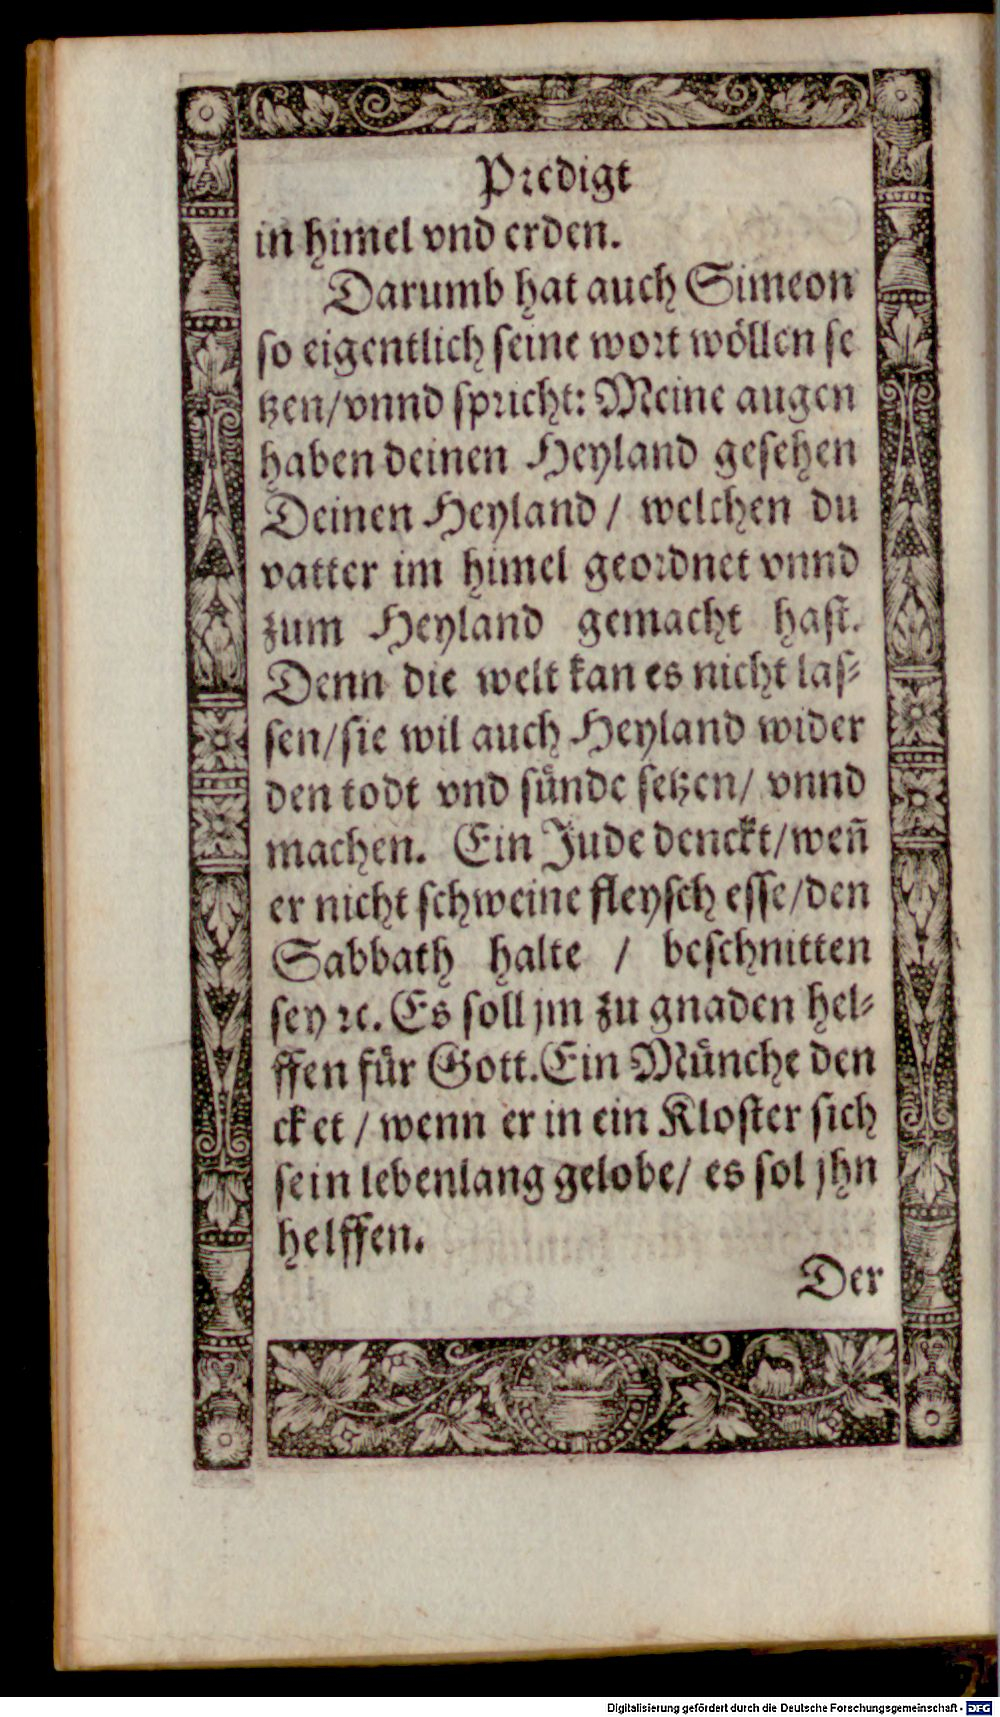 Predigt
in himel vnd erden.
Darumb hat auch Simeon
so eigentlich seine wort wöllen se
tzen/vnnd spricht: Meine augen
haben deinen Heyland gesehen
Deinen Heyland / welchen du
vatter im himel geordnet vnnd
zum Heyland gemacht hast.
Denn die welt kan es nicht las⸗
sen/sie wil auch Heyland wider
den todt vnd sünde setzen/ vnnd
machen. Ein Jude denckt/weñ
er nicht schweine fleysch esse/den
Sabbath halte / beschnitten
sey ꝛc. Es soll jm zu gnaden hel⸗
ffen für Gott.Ein Münche den
cket / wenn er in ein Kloster sich
sein lebenlang gelobe/ es sol jhn
helffen.
Der
Digitalisierung gefördert durch die Deutsche Forschungsgemeinschaft - DFG